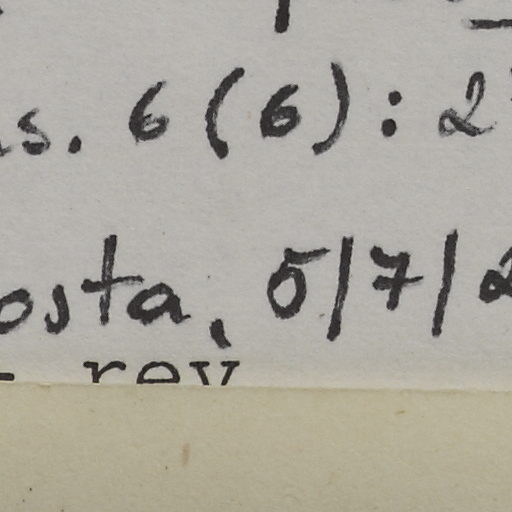 s. 6 (6): 2
osta, 5/7/2
rev